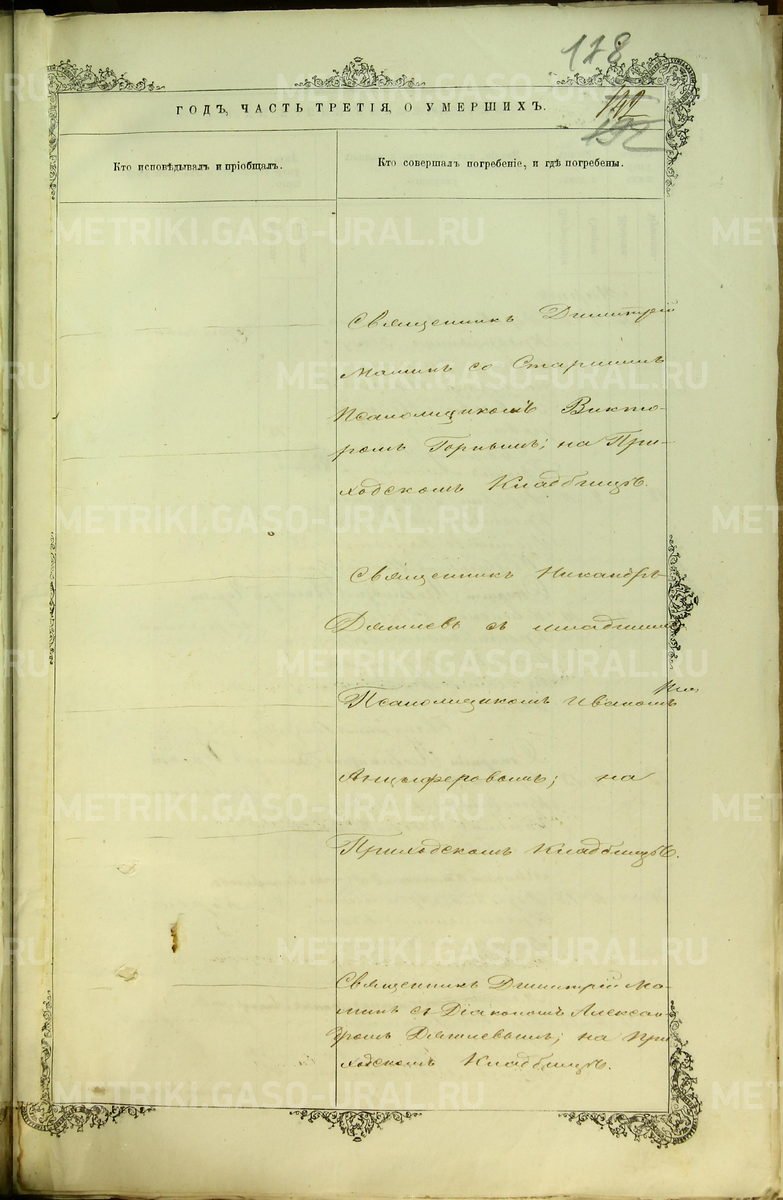 178
142
192
ГОДЪ, ЧАСТЬ ТРЕТІЯ, О УМЕРШИХЪ.
Кто исповѣдывалъ и пріобщалъ.
Кто совершалъ погребеніе, и гдѣ погребены.
Священникъ Димитрій
Маминъ со Старшимъ
Псаломщикомъ Викто-
ромъ Горнымъ; на При-
ходскомъ Кладбищѣ.
Священникъ Никандръ
с младшимъ
Псаломщикомъ Иваномъ
Анциферовымъ; на
Приходскомъ Кладбищѣ.
Священникъ Димитрій Ма-
минъ съ Діакономъ Алексан-
дромъ на При
ходскомъ Кладбищѣ.
METRIKI.GASO-URAL.RU